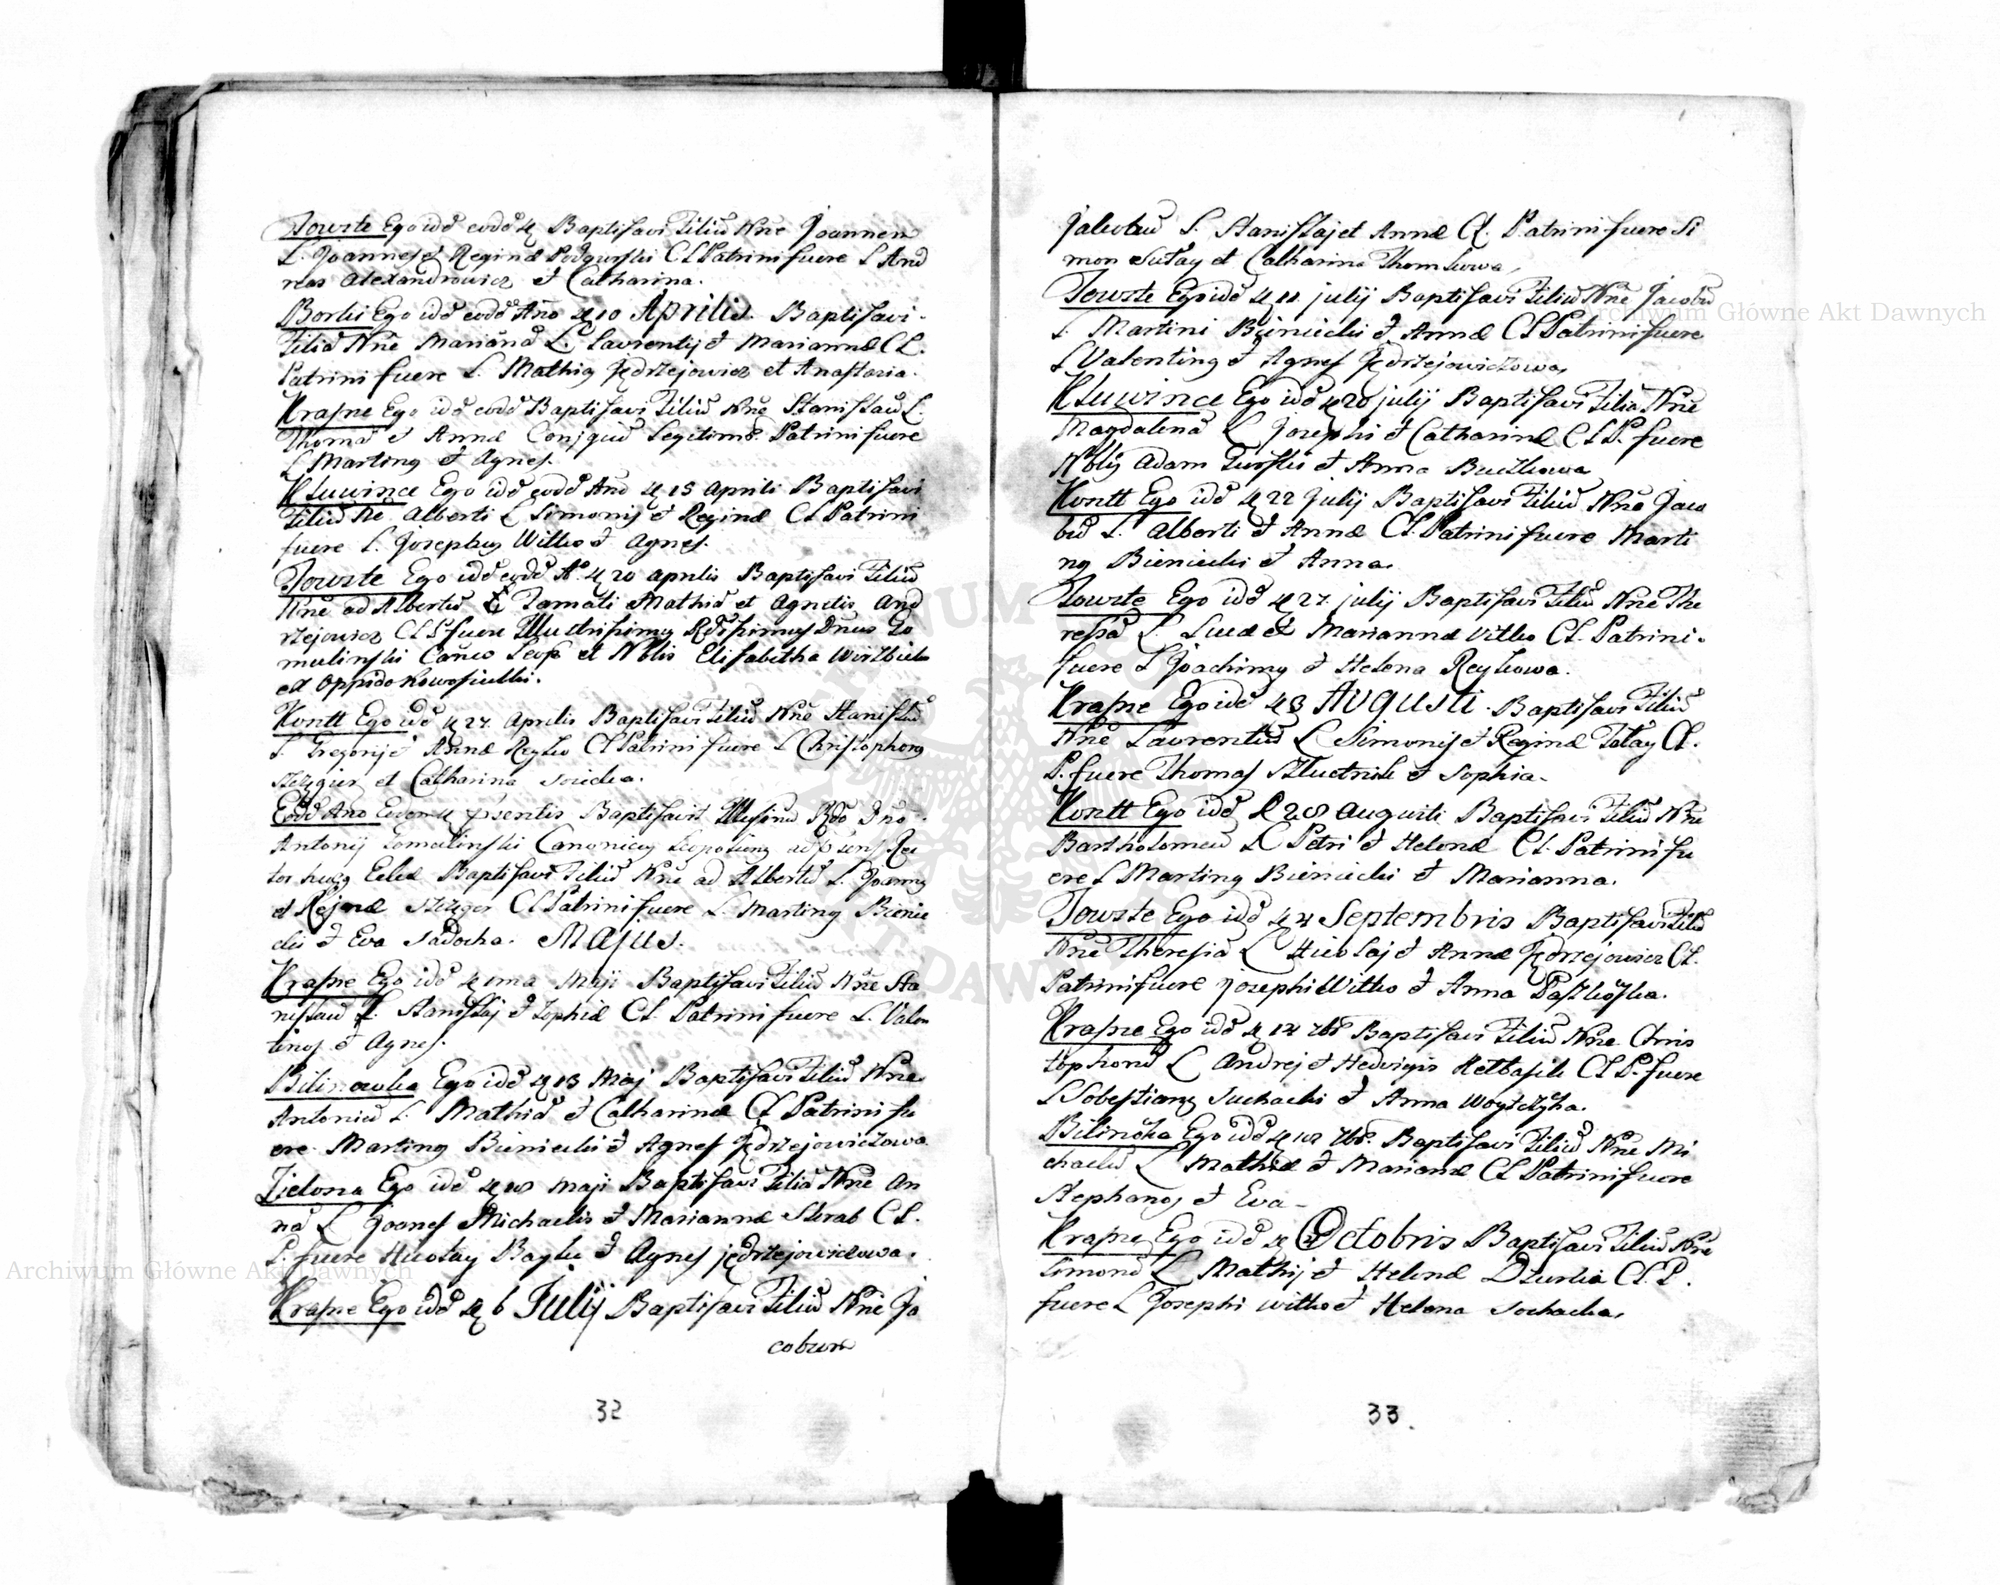 Towste Ego idē eodē Baptisavi Filiū Nnē Joannem
L. Joannes et Reginæ Podgurski CL Patrini fuere L And
reas Alexandrowicz et Catharina.
Borki Ego idē eodē Año 10 Aprilis. Baptisavi
Filiā Nnē Mariānā L. Laurentij et Mariannæ CL.
Patrini fuere L. Mathiq Jędrzejowicz et Anastazia.
Krasne Ego idē eodē Baptisavi Filiū Nnē Stanislaū L.
Thomæ et Annæ Conjguū Legitimo. Patrini fuere
L Martinq et Agnes.
Kluwince Ego idē eodē Año 15 Aprili Baptisavi
Filiū Ne Alberti L Simonis et Reginæ CL Patrini
fuere L. Josephq Witko et Agnes.
Towste Ego idē eodē A. 20 aprilis Baptisavi Filiū
Nnē ad Albertū L Mathiæ et Agnetis And
rzejowicz CL P fuere Dnus
et Nblis Elisabetha
ex Oppido
Kontt Ego idē 27. Aprilis Baptisavi Filiū Nnē Stanislū
L. Gregorij et Annæ Reyko CL Patrini fuere L Christophorq
et Catharina
Eodē Año Baptisavit
Antonij Canonicq
Baptisavi Filiū Nnē ad Albertū L. Joannq
et CL Patrini fuere L. Martinq Bienie
cki et Eva Sadocha. Majus.
Krasne Ego idē 1ma Maji Baptisavi Filiū Nnē Sta
nislaū L. Stanislaj et Zophiæ CL. Patrini fuere L. Valen
tinq et Agnes.
Bilinowka Ego idē 13 Maj Baptisavi Filiū Nnē
Antoniū L. Mathiæ et Catharinæ CL Patrini fu
ere Martinq Bieniecki et Agnes Jędrzejowiczowa
Zielona Ego idē 18 Maji Baptisavi Filiā Nnē An
nā L Joanes Michaelis et Mariannæ CL.
P. fuere Nicolay et Agnes jędrzejowiczowa.
Krasne Ego idē 6 Julij Baptisavi Filiū Nnē Ja
cobum
32
Jakobū L. Stanislaj et Annæ CL. Patrini fuere Si
mon Sutay et Catharina Thomkowa,
Towste Ego idē 11 julij Baptisavi Filiū Nnē Jacobū
L. Martini Bieniecki et Annæ CL Patrini fuere
L Valentinq et Agnes Jędrzejowiczowa.
Kluwince Ego idē 20 julij Baptisavi Filiā Nnē
Magdalenā L Josephi et Catharinæ CL P. fuere
Nblis Adam Turski et Anna
Kontt Ego idē 22 julij Baptisavi Filiū Nnē Jaco
bū L. Alberti et Annæ CL. Patrini fuere Marti
nq Bieniecki et Anna.
Towste Ego idē 27. julij Baptisavi Filiū Nnē The
resiā L. Lucæ et Mariannæ Witko CL. Patrini
fuere L Joachimq et Helena Reykowa.
Krasne Ego idē 3 Augusti. Baptisavi Filiū
Nnē Laurentiū L Simonis et Reginæ CL.
P. fuere Thomas et Sophia.
Kontt Ego idē 28 Augusti Baptisavi Filiū Nnē
Bartholomeū L Petri et Helenæ CL. Patrini fu
ere L Martinq Bieniecki et Marianna.
Towste Ego idē 4 Septembris Baptisavi Filiā
Nnē Theresiā L Nicolaj et Annæ Jędrzejowicz CL.
Patrini fuere josephi Witko et Anna
Krasne Ego idē 14 7bř Baptisavi Filiū Nnē Chris
tophorū L Andrej et Hedvigis CL P. fuere
L Sobestianq Suchacki et Anna
Bilinōka Ego idē 18 7bř. Baptisavi Filiū Nnē Mi
chaelū L Mathiæ et Marianæ CL Patrini fuere
Stephanq et Eva
Krasne Ego idē Octobris Baptisavi Filiū Nnē
Simonē L Mathij et Helenæ CL P.
fuere L Josephi Witko et Helena Sochacka,
33.
Archiwum Główne Akt Dawnych
Archiwum Główne Akt Dawnych